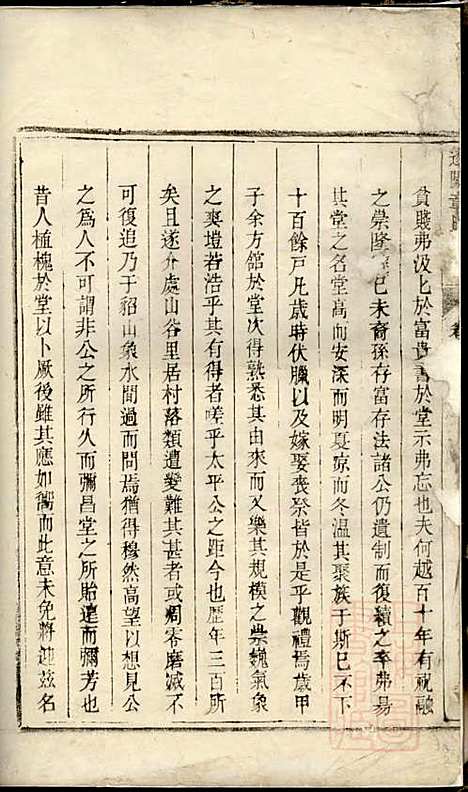 貧賤弗汲汲於富貴書於堂示弗忘也夫何越百十年有祝融
之崇隆己未裔孫存富存法諸公仍遺制而復續之卒弗易
其堂之名堂高而安深而明夏凉而冬温其聚族于斯已不下
十百餘戸凡歳時伏臘以及嫁娶喪祭皆於是乎觀禮焉歲甲
子余方館於堂次得熟悉其由來而又樂其規模之崇巍氣象
之爽塏若浩乎其有得者嗟乎太平公之距今也歷年三百所
矣且遂介處山谷里居村落類遭變難其甚者或凋零磨滅不
可復追乃于貂山象水間過而問焉猶得穆然高望以想見公
之爲人不可謂非公之所行久而彌昌堂之所貽遠而彌芳也
昔人植槐於堂以卜厥後雖其應如嚮而此意未免將迎茲名